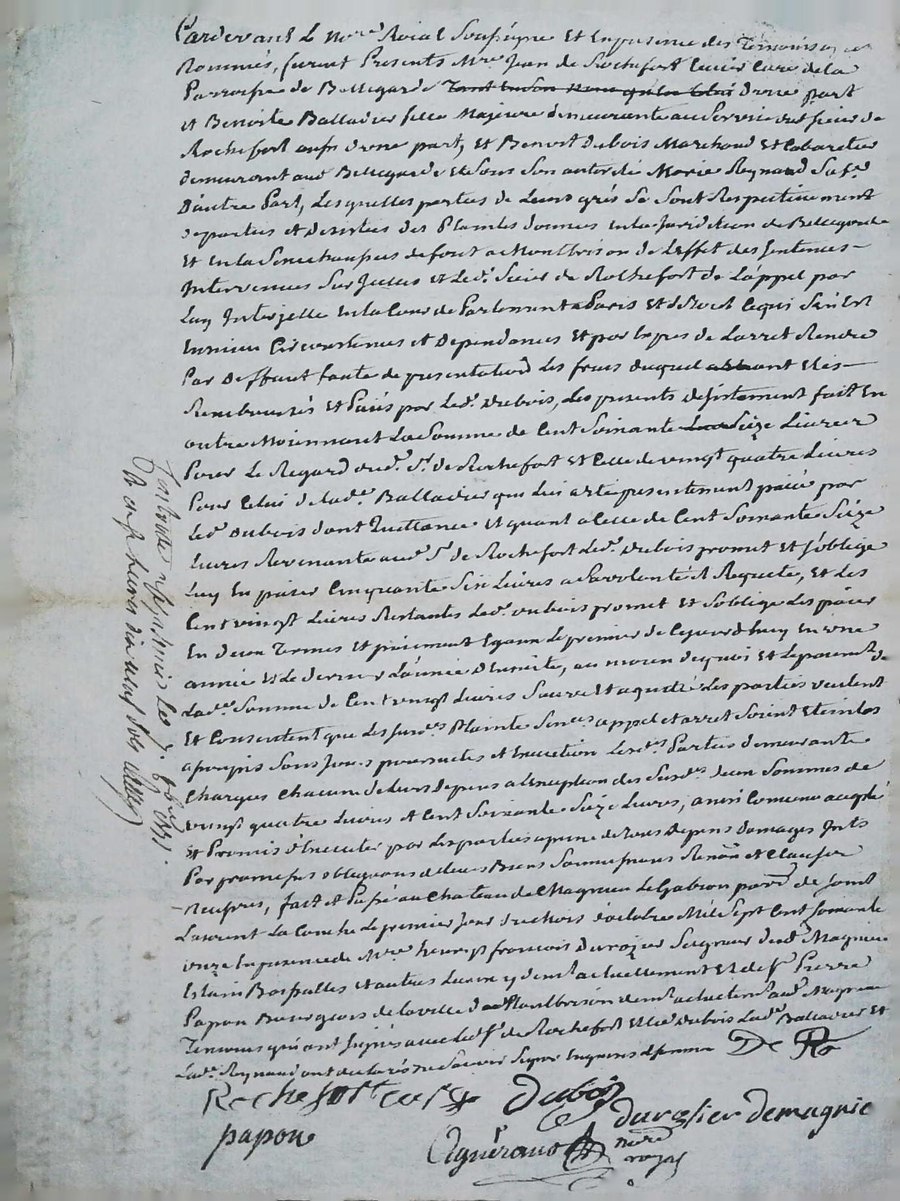 Pardevant Le no.re Roial Soussigne Et En presence des Temoins
Nommés, furent Presents M.re Jean de Rochefort Curé de la
Parroisse de Bellegarde d'une part
et Benoite Balladier fille Majeure demeurante au Service dud. sieur de
Rochefort aussi d'une part, Et Benoit Dubois Marchand Et Cabaretier
demeurant aud. Bellegarde Et Sous Son autorité Marie Reynaud Sa f.e
D'autre Part, Lesquelles parties de Leurs grés Se Sont Respectivement
departies et desistées des Plaintes données En la Juridiction de Bellegarde
Et En la Senechaussée de forest a Montbrison de L'effet des Sentences
Intervenues Sur Icelles et Led. Sieur de Rochefort de L'appel par
Luy Interjetté En la Cour de Parlement a Paris Et de tout Ce qui S'en Est
Ensuivi Circonstances et Dependances Et par Exprès de L'arret Rendu
Par Deffaut faute de presentation Les frais duquel
Rembourcés et Paiés par Led. Dubois, Les presents desistement fait En
outre Moiennant La Somme de Cent Soixante Seize Livres
Pour Le Regard dud. S.r de Rochefort Et Celle de vingt quatre Livres
Pour Celui de Lad.e Balladier qui Lui a été presentement paiée par
Led. Dubois dont Quittance Et quant a Celle de Cent Soixante Seize
Livres Revenante aud. S.r de Rochefort Led. Dubois promet Et S'oblige
Luy En paier Cinquante Six Livres a Sa volonté Et Requete, Et Les
Cent vingt Livres Restantes Led. Dubois promet Et S'oblige Les paier
En Deux Termes Et paiement Egaux Le premier de Ce jourd'huy En une
année Et Le dernier L'année d'Ensuite, au moien de quoi Et Le paiem.t de
Lad.e Somme de Cent vingt Livres Les parties veulent
Et Consentent que Les Plainte Sen.ces appel et arret Soient Eteints
assoupis Sans poursuites et Execution Lesd.es Parties demeurante
Chargés Chacune de Leurs depens a L'exception des Susd.es deux Sommes de
vingt quatre Livres Et Cent Soixante Seize Livres, ainsi Convenu accepté
Et Promis d'Executer par Les parties a peine de Tous Depens Domages Ints
Par promesses obligations de Leurs Biens Soumissions Renon. et Clauses
Requises, fait et Passé au Chateau de Magnieu Le Gabion parr.e de Saint
Laurent La Conche Le premier jour d'octobre Mil Sept Cent Soixante
onze En presence de M.re francois Durozier Seigneur dud. Magnieu
Et autres Lieux y dem.t actuellement Et de S.r Pierre
Papon Bourgeois de la ville de Montbrison dem.t actuellem.t aud. Magnieu
Temoins qui ont Signés avec Led. S.r de Rochefort Et Led. Dubois Lad.e Balladier Et
Lad.e Reynaud ont declarés ne Savoir Signer Enquises
Rochefort curé Dubois durosier de magnie
papon
no.re royal
livres dix neuf sols